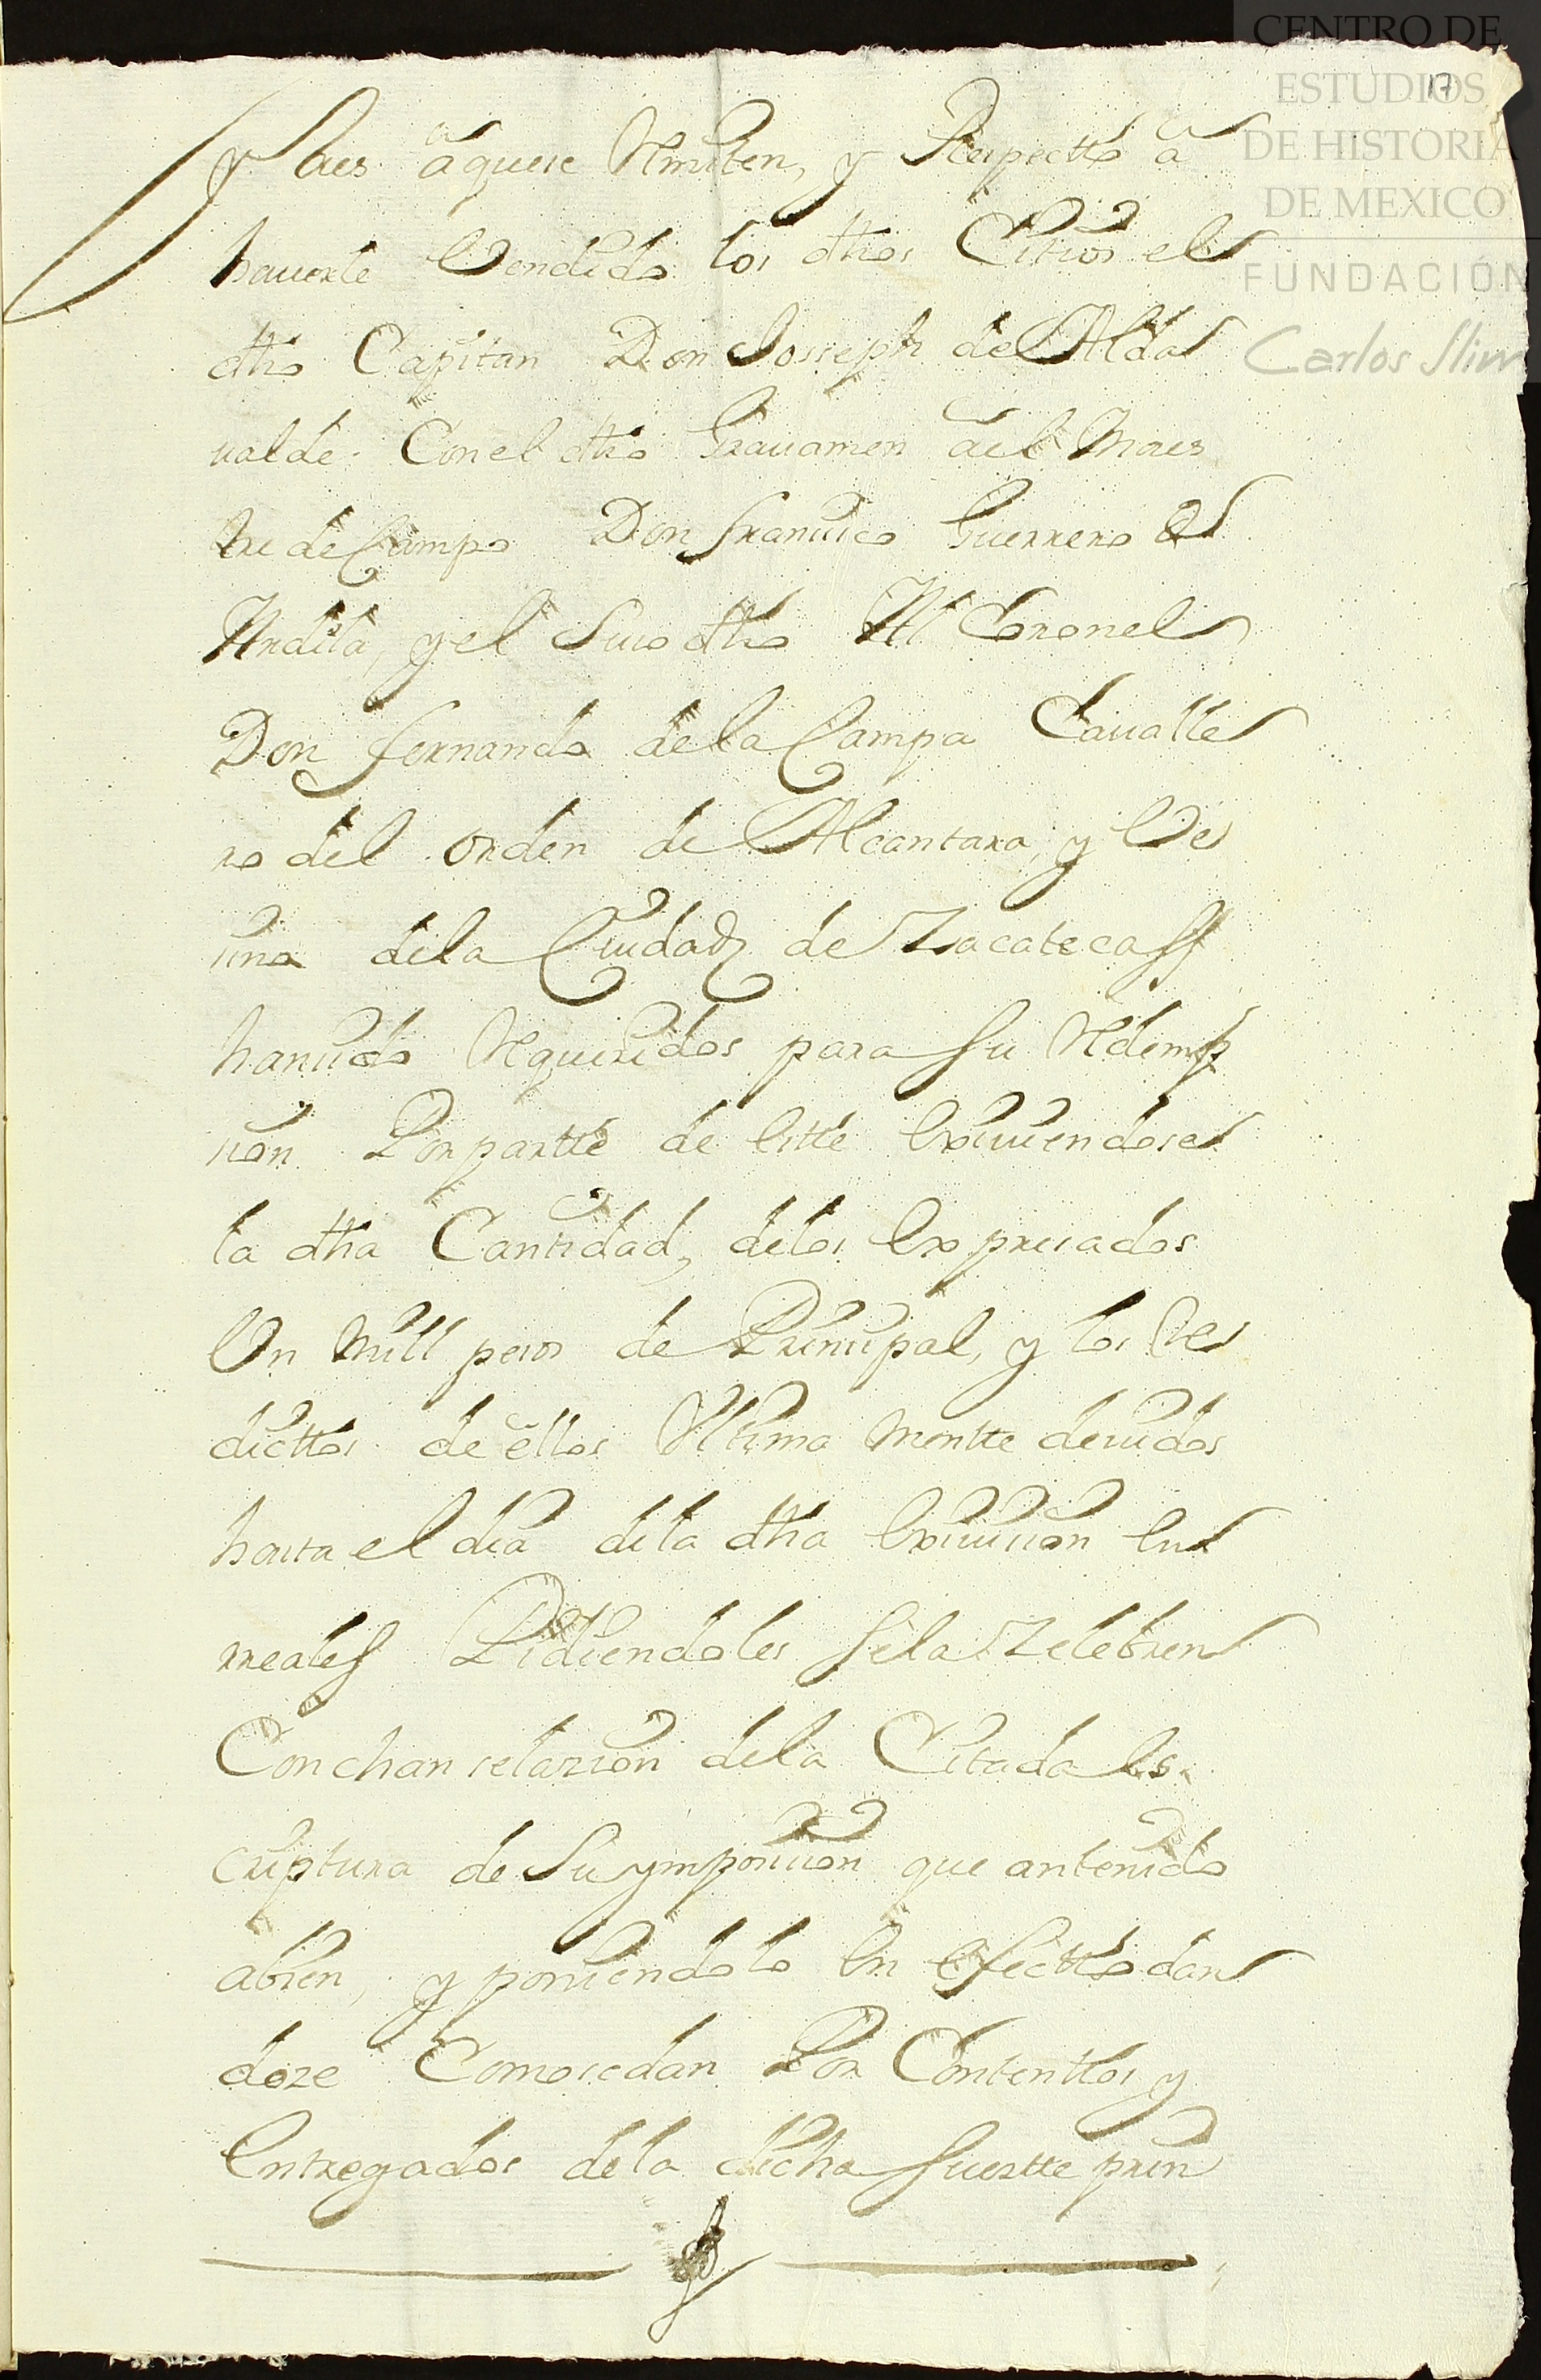 CENTRO DE
ESTUDIOS
DE HISTORIA
DE MEXICO
FUNDACIÓN
Carlos Slim
17
y aquese Remiten, y Respectto â
hauerle Vendido los dhos Citios el
dho Capitan Don Josseph de Alda
ualde Con el dho Grauamen âel Maes
tre de Campo Don francisco Guerrero
Ardila, y el Suso dho Al Coronel
Don fernando de la Campa Caualle
ro del orden de Alcantara, y Ve
cino de la Ciudad de Zacatecas
hancido Requeridos para su Redemp
cion Por partte de Estte Exciuiendose
la dha Cantidad, de los Expresados
Un Mill pesos de Principal, y los Re
dicttos de êllos Ultima Mentte deuidos
hasta el dia de la dha Exciuicion En
rreales Pidiendoles se la Zelebren
Con chanselazion de la Citada Es
criptura de Su ymposicion que an tenido
abien, y poniendolo En efectto dan
doze Como se dan Por Contenttos y
Entregados de la dicha Suertte prin